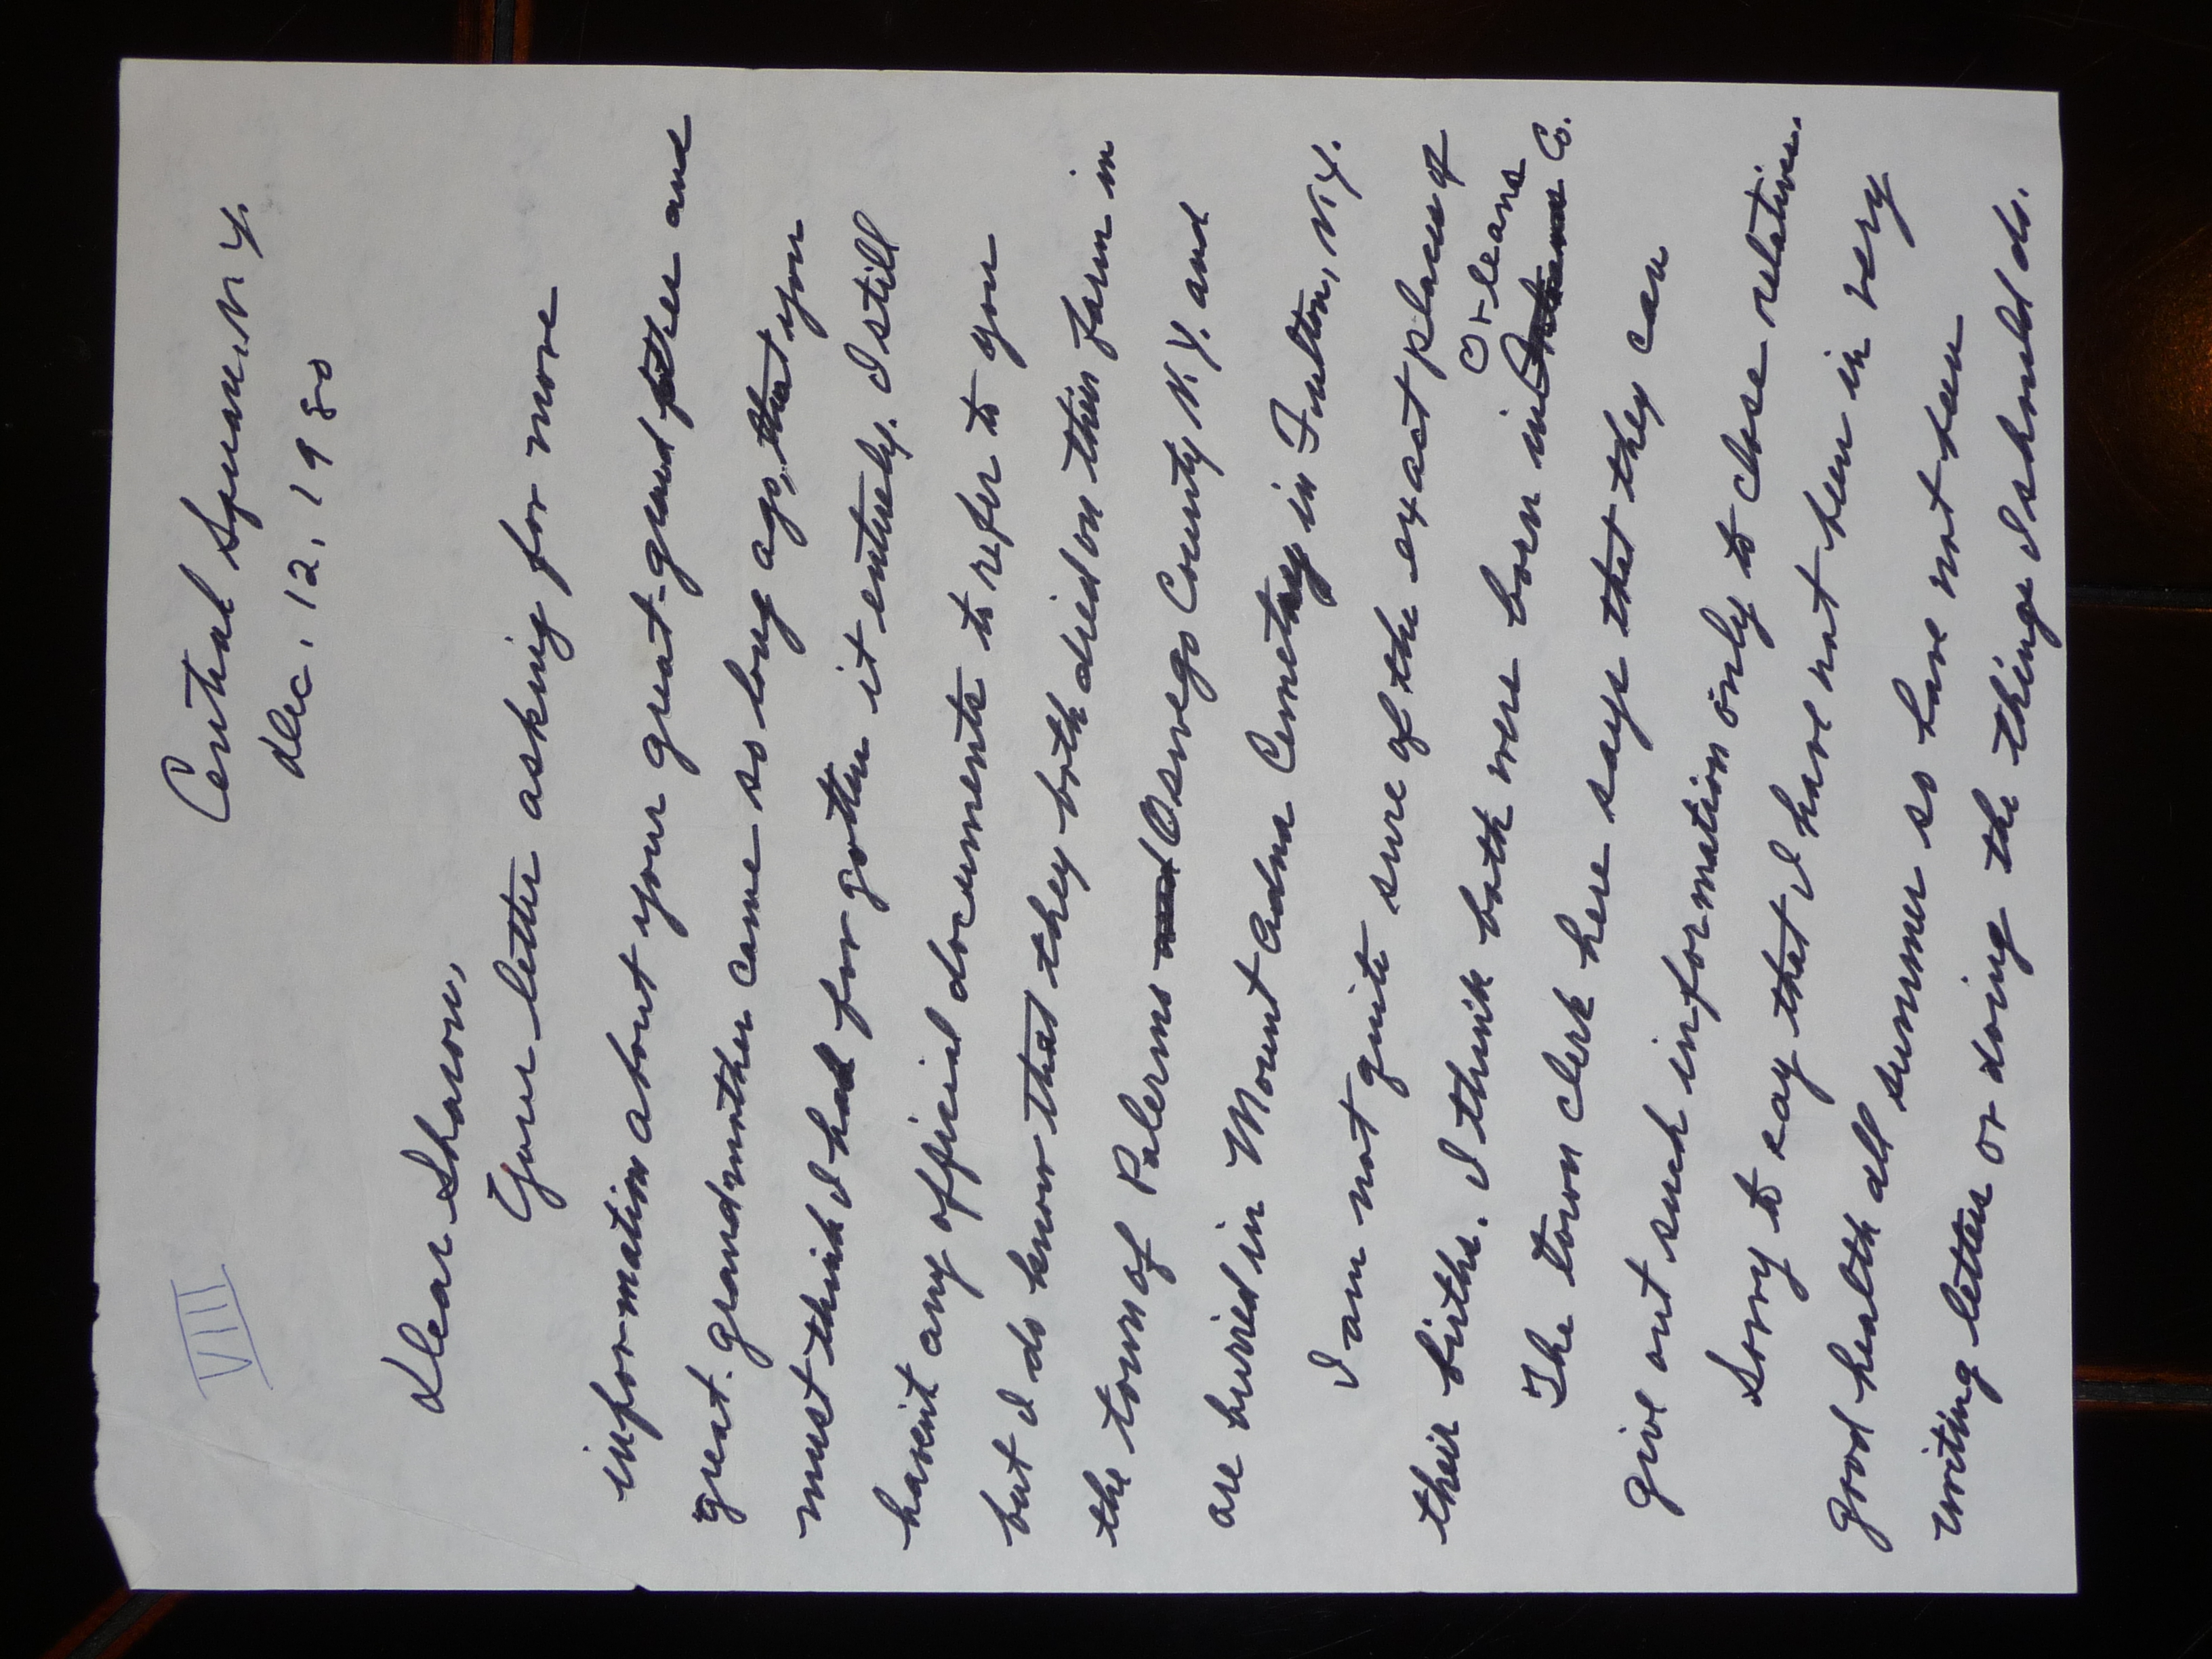 VIII
Central Square, N.Y.
Dec. 12, 1980
Dear Sharon,
Your letter asking for more
information about your great-grand father and
great-grandmother came so long ago, that you
must think I had for gotten it entirely. I still
havent any official documents to refer to you
but I do know that they both died on this farm in
the town of Palermo and Oswego County N.Y. and
are buried in Mount Adna Cemetary in Fulton, N.Y.
I am not quite sure of the exact places of
their births. I think both were born in Orleans Co.
The town clerk here says that they can
give out such information only to close relatives.
Sorry to say that I have not been in very
good health all summer so have not been
writing letters or doing the things I should do.